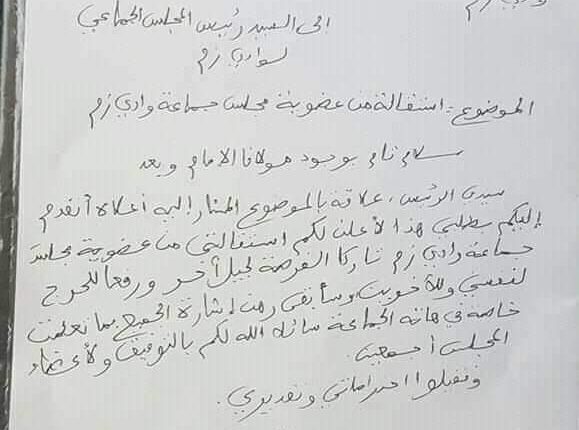 وادي زم
الى السيد رئيس المجلس الجماعي
لوادي زم
الموضوع: استقالة من عضوية مجلس جماعة وادي زم
سلام تام بوجود مولانا الامام وبعد
سيدي الرئيس، علاقة بالموضوع المشار إليه أعلاه أتقدم
إليكم بطلبي هذا لأعلن لكم استقالتي من عضوية مجلس
جماعة وادي زم تاركا الفرصة لجيل أخر ورفعا للحرج
لنفسي وسأبقى رهن إشارة الجميع بما تعلمت
خاصة في هاته الجماعة سائلا الله لكم بالتوفيق ولأعضاء
المجلس أجمعين.
وتقبلوا احتراماتي وتقديري.